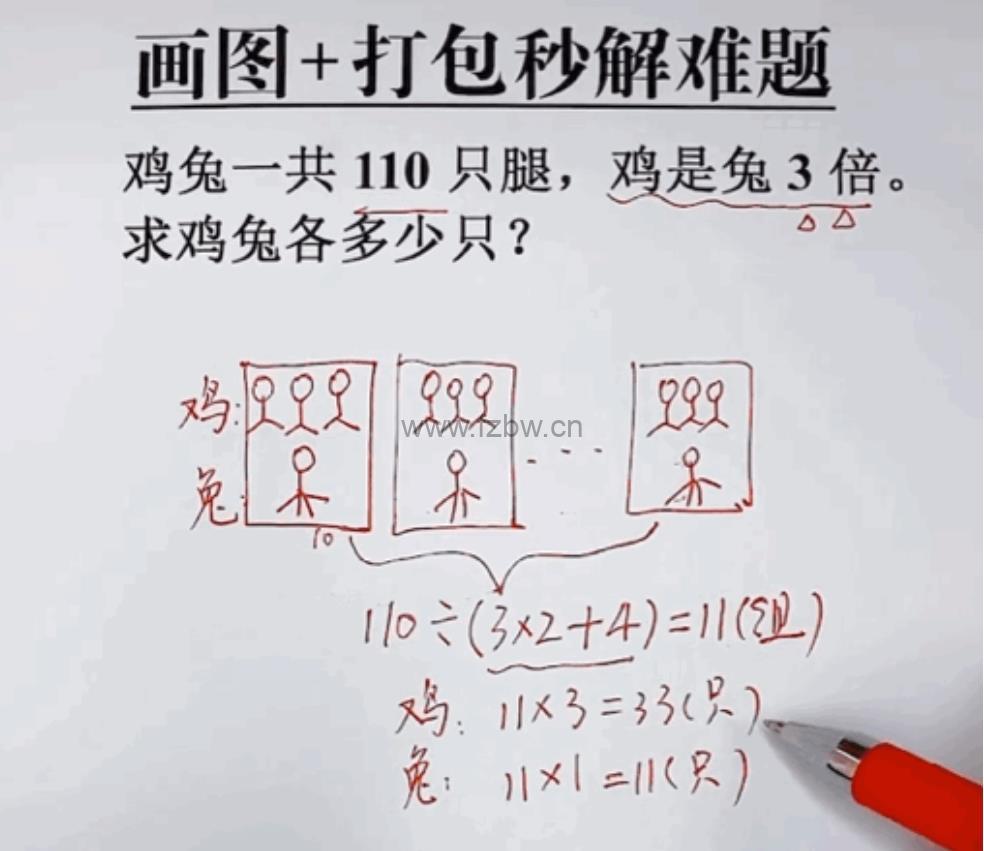 画图+打包秒解难题
鸡兔一共 110 只腿，鸡是兔 3 倍。
求鸡兔各多少只？
鸡:
www.rzbw.cn
兔:
10
110÷(3×2+4)=11(组)
鸡: 11×3=33(只)
兔: 11×1=11(只)